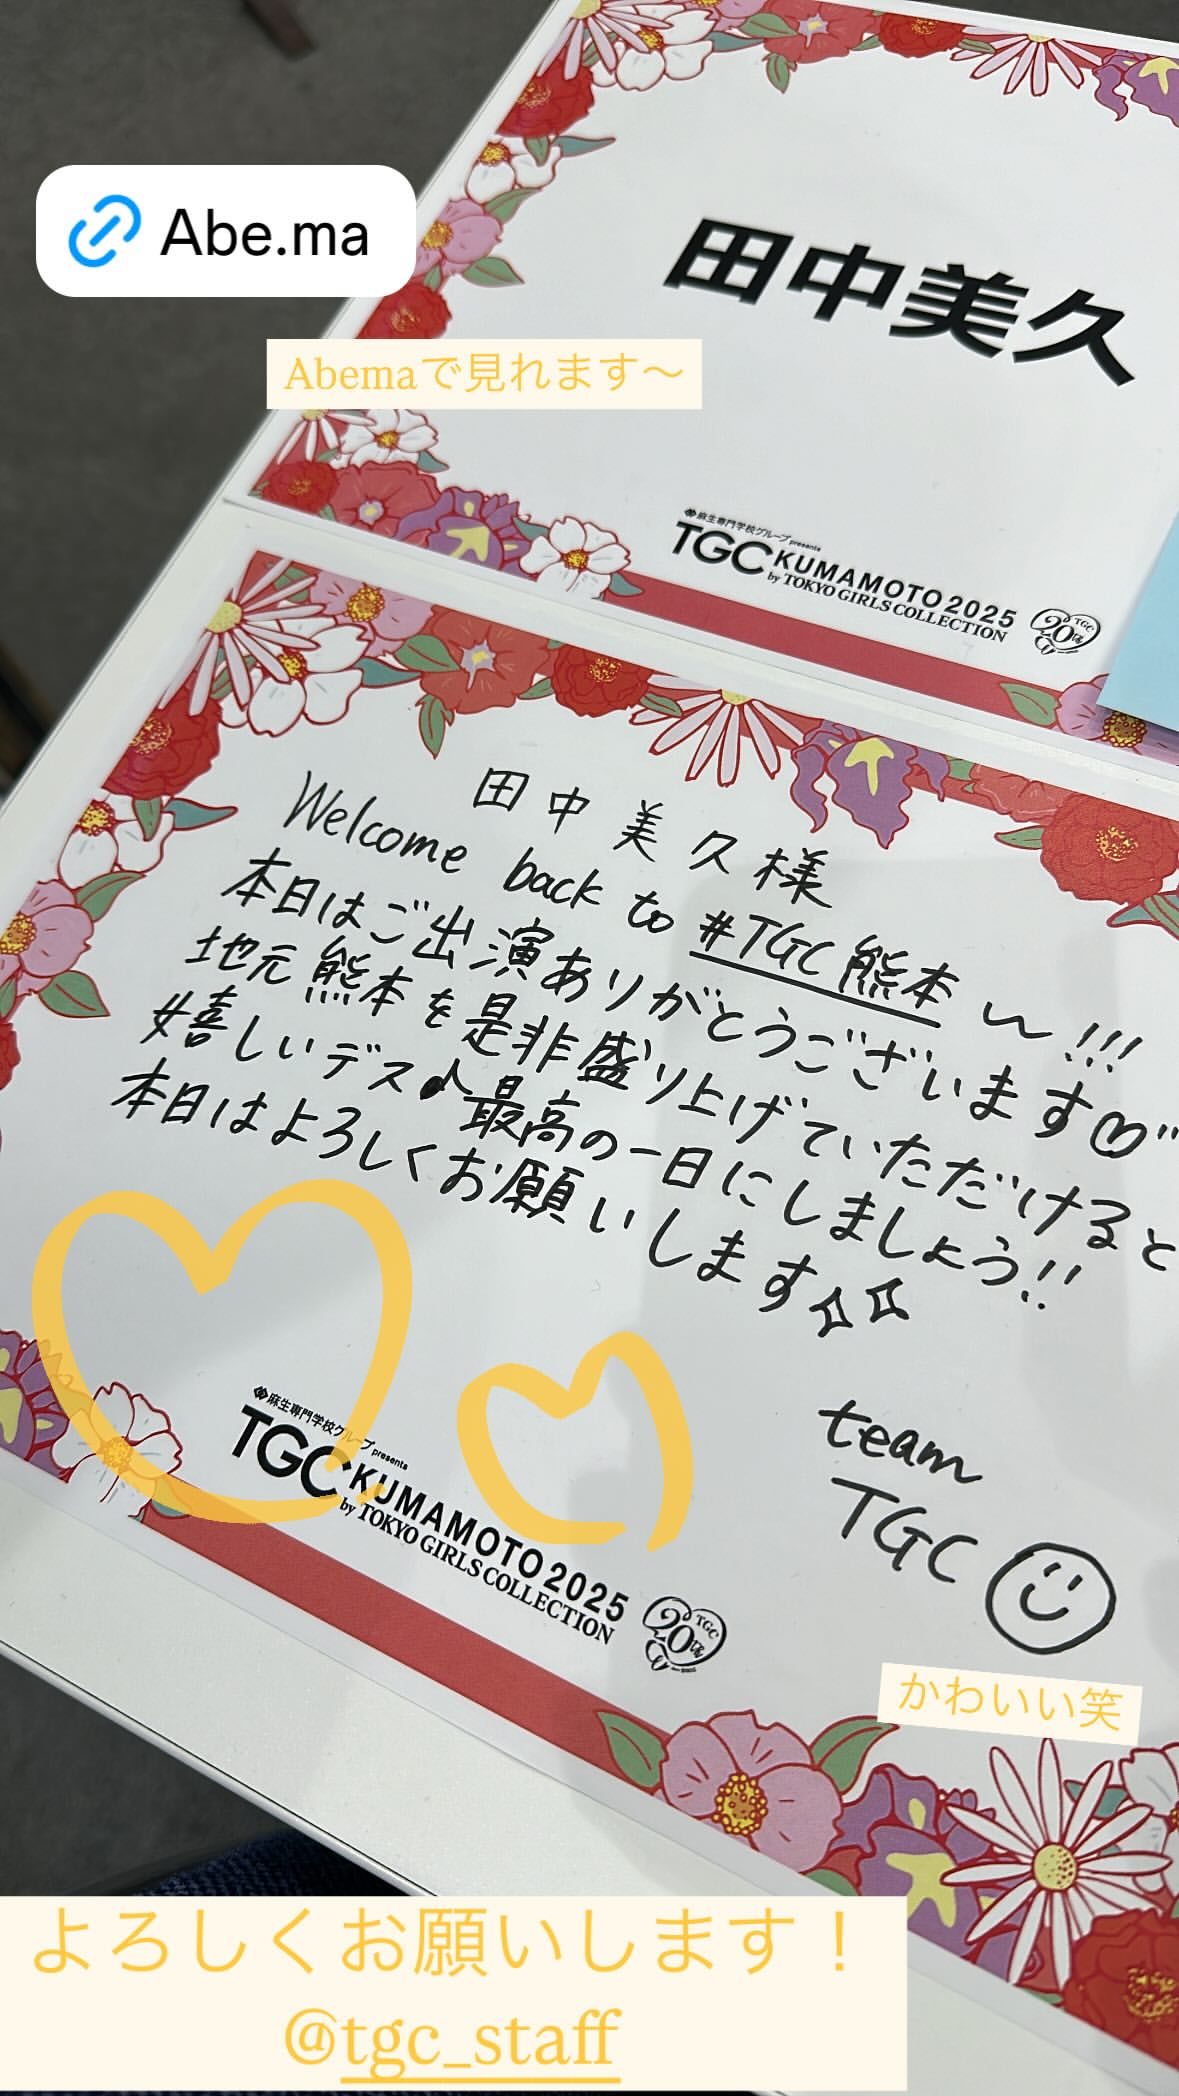 Abe.ma
田中美久
Abemaで見れます〜
麻生専門学校グループ presents
TGC KUMAMOTO 2025
by TOKYO GIRLS COLLECTION
TGC 20th
田中美久様
Welcome back to #TGC熊本 〜!!!
本日はご出演ありがとうございます♡"
地元熊本を是非盛り上げていただけると
嬉しいデス♪最高の一日にしましょう!!
本日はよろしくお願いします☆☆
team
TGC
麻生専門学校グループ presents
TGC KUMAMOTO 2025
by TOKYO GIRLS COLLECTION
TGC 20th
かわいい笑
よろしくお願いします！
@tgc_staff